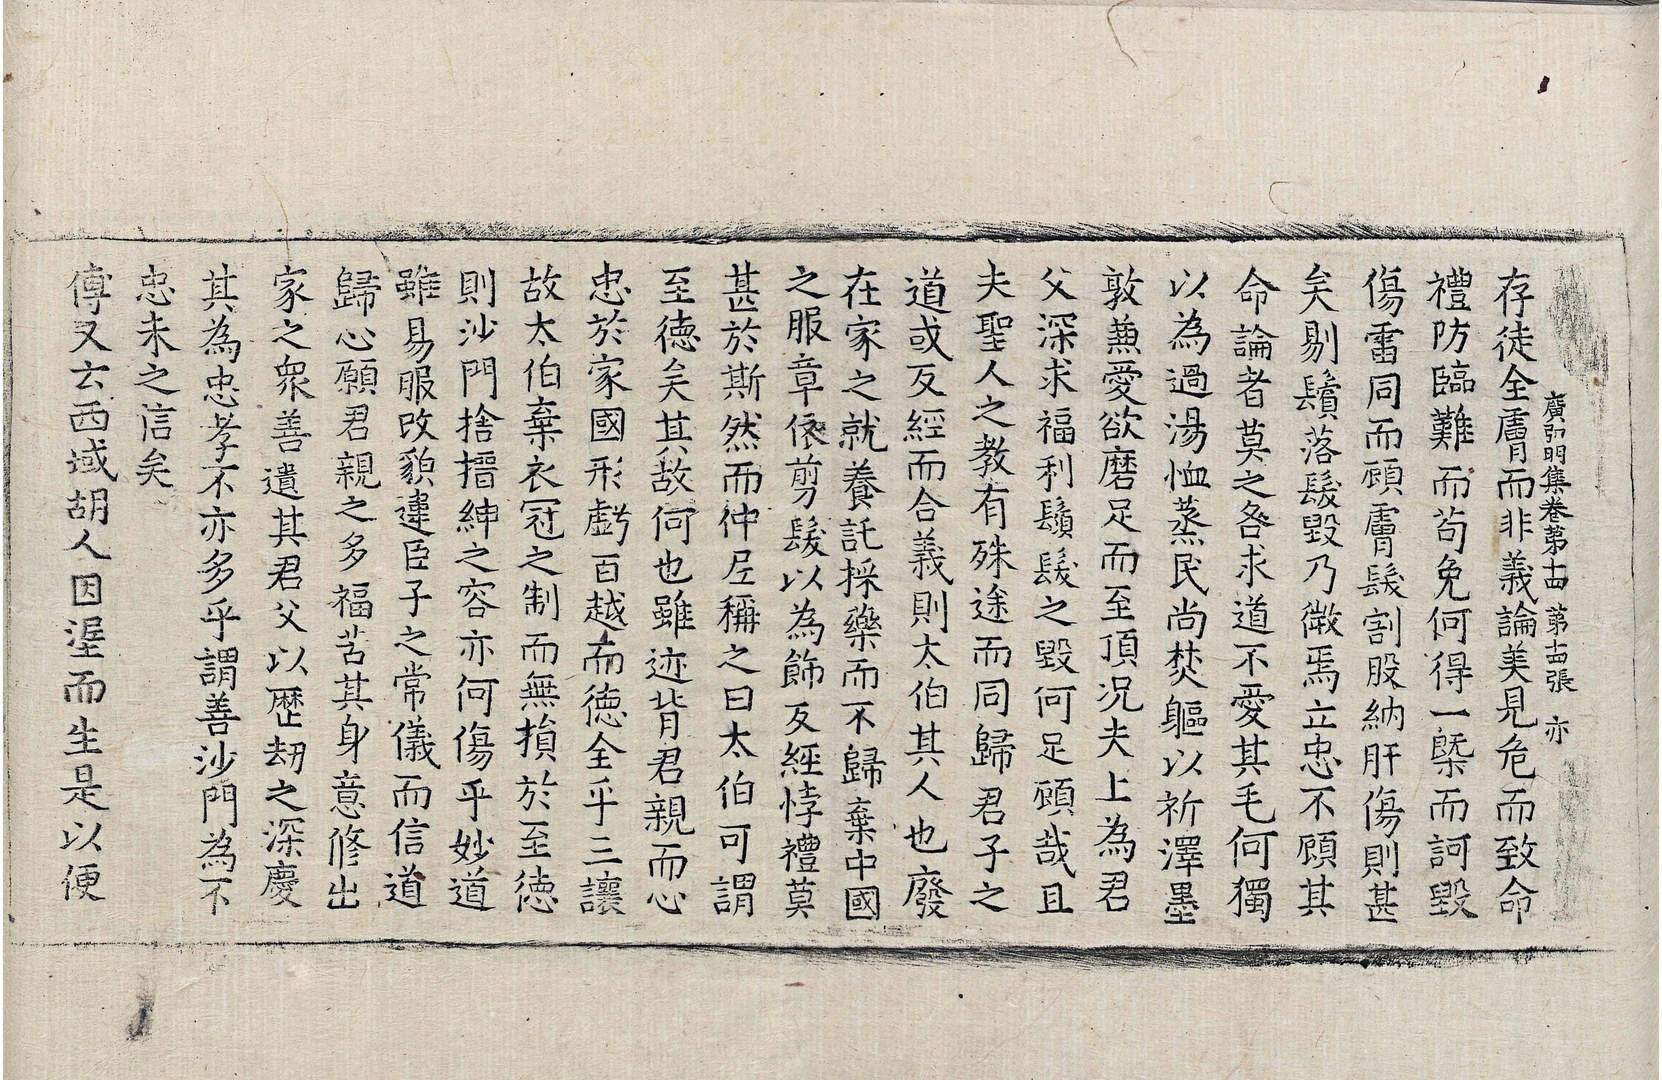 廣弘明集卷第十四 第十四張 亦
存徒全膚而非義論美見危而致命
禮防臨難而苟免何得一槩而訶毀
傷雷同而顧膚髮割股納肝傷則甚
矣剔鬚落髮毀乃微焉立忠不顧其
命論者莫之咎求道不愛其毛何獨
以為過湯恤蒸民尚焚軀以祈澤墨
敦兼愛欲磨足而至頂况夫上為君
父深求福利鬚髮之毀何足顧哉且
夫聖人之教有殊途而同歸君子之
道或反經而合義則太伯其人也廢
在家之就養託採藥而不歸棄中國
之服章依剪髮以為飾反經悖禮莫
甚於斯然而仲尼稱之曰太伯可謂
至德矣其故何也雖迹背君親而心
忠於家國形虧百越而德全乎三讓
故太伯棄衣冠之制而無損於至德
則沙門捨搢紳之容亦何傷乎妙道
雖易服改貌違臣子之常儀而信道
歸心願君親之多福苦其身意修出
家之衆善遺其君父以歷劫之深慶
其為忠孝不亦多乎謂善沙門為不
忠未之信矣
傳又云西域胡人因埿而生是以便